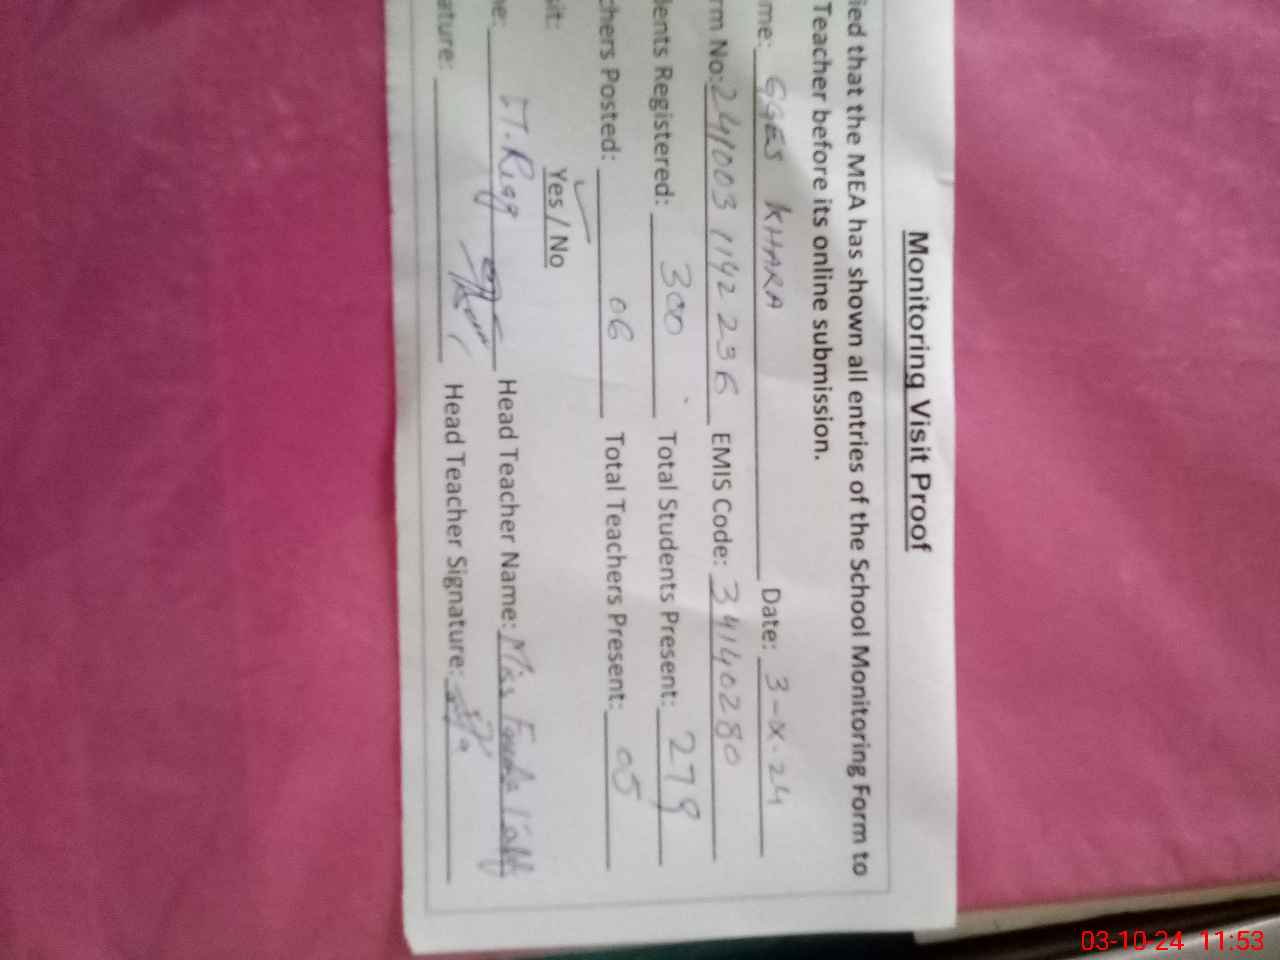 Monitoring Visit Proof
ied that the MEA has shown all entries of the School Monitoring Form to
Teacher before its online submission.
me: GGES KHARA Date: 3-X-24
rm No: 241003 1142 236 EMIS Code: 34140280
ents Registered: 300 Total Students Present: 279
chers Posted: 06 Total Teachers Present: 05
it: Yes / No
e: Head Teacher Name: Miss
ature: Head Teacher Signature:
03-10-24 11:53